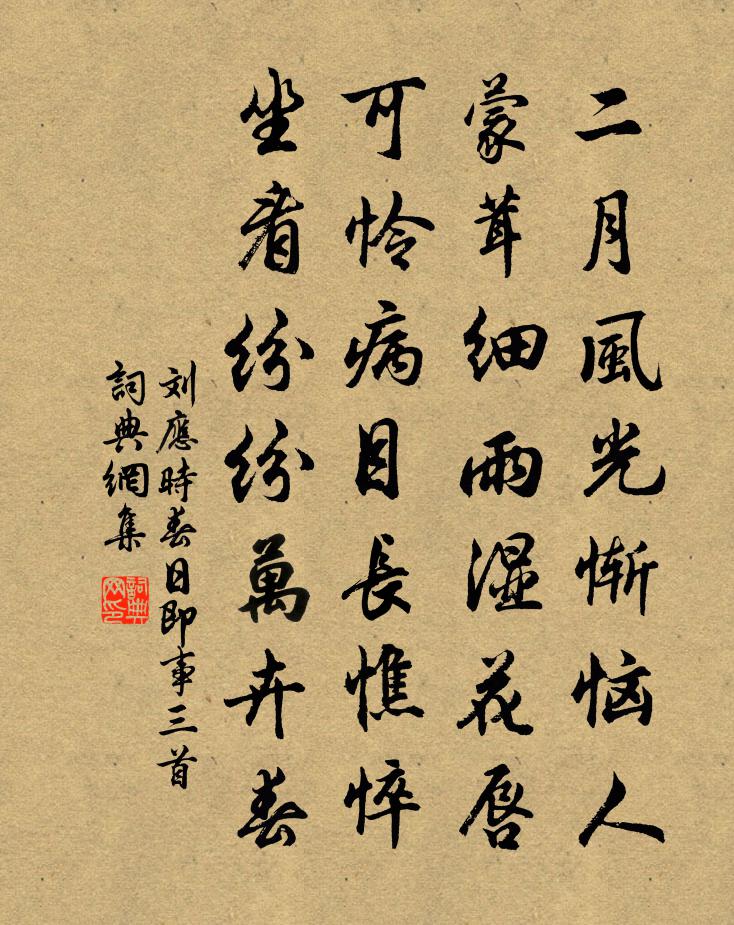 二月風光惭恼人
蒙茸细雨湿花唇
可怜病目長憔悴
坐看纷纷萬卉春
刘應時春日即事三首
詞典網集
詞典网印